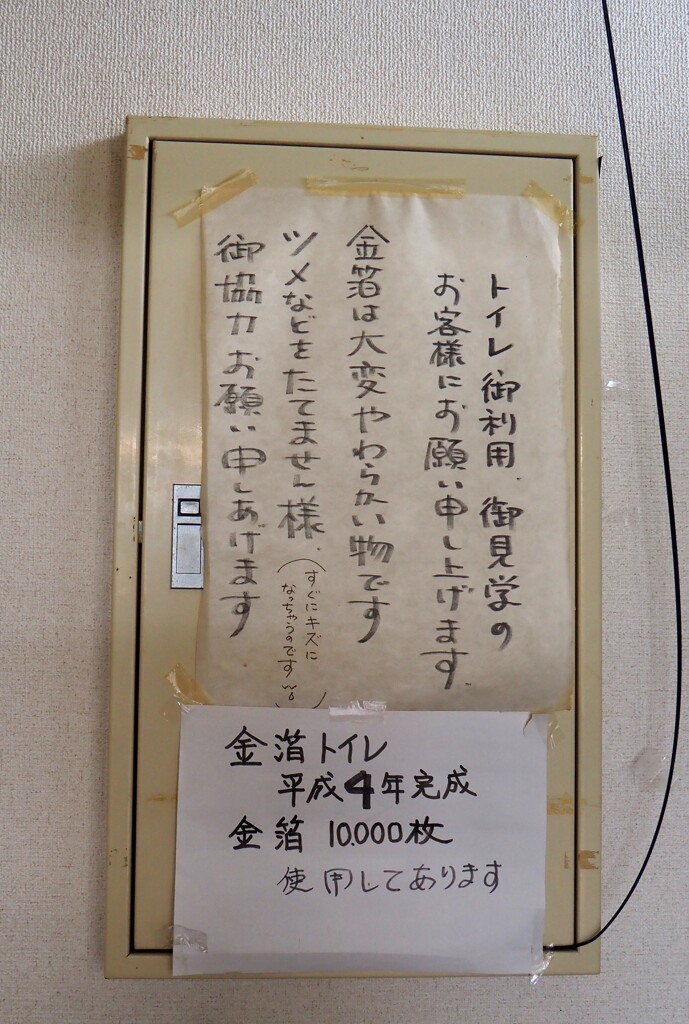 トイレ御利用、御見学の
お客様にお願い申し上げます。
金箔は大変やわらかい物です
ツメなどをたてません様、
（すぐにキズに
なっちゃうのです）
御協力お願い申しあげます
金箔トイレ
平成4年完成
金箔 10.000枚
使用してあります